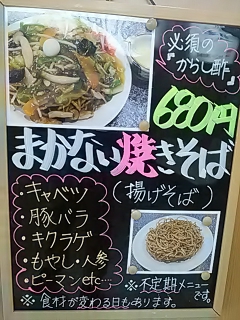 必須の
『からし酢』
680円
まかない焼きそば
(揚げそば)
・キャベツ
・豚バラ
・キクラゲ
・もやし・人参
・ピーマンetc…
※不定期メニュー
です。
※食材が変わる日もあります。